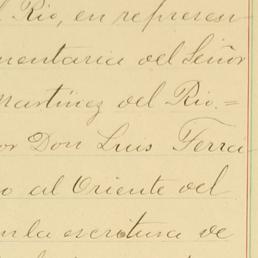 l Rio, en represen-
mentaria del Señor
Martínez del Rio.=
or Don Luis Ferra-
o al Oriente del
en la escritura de